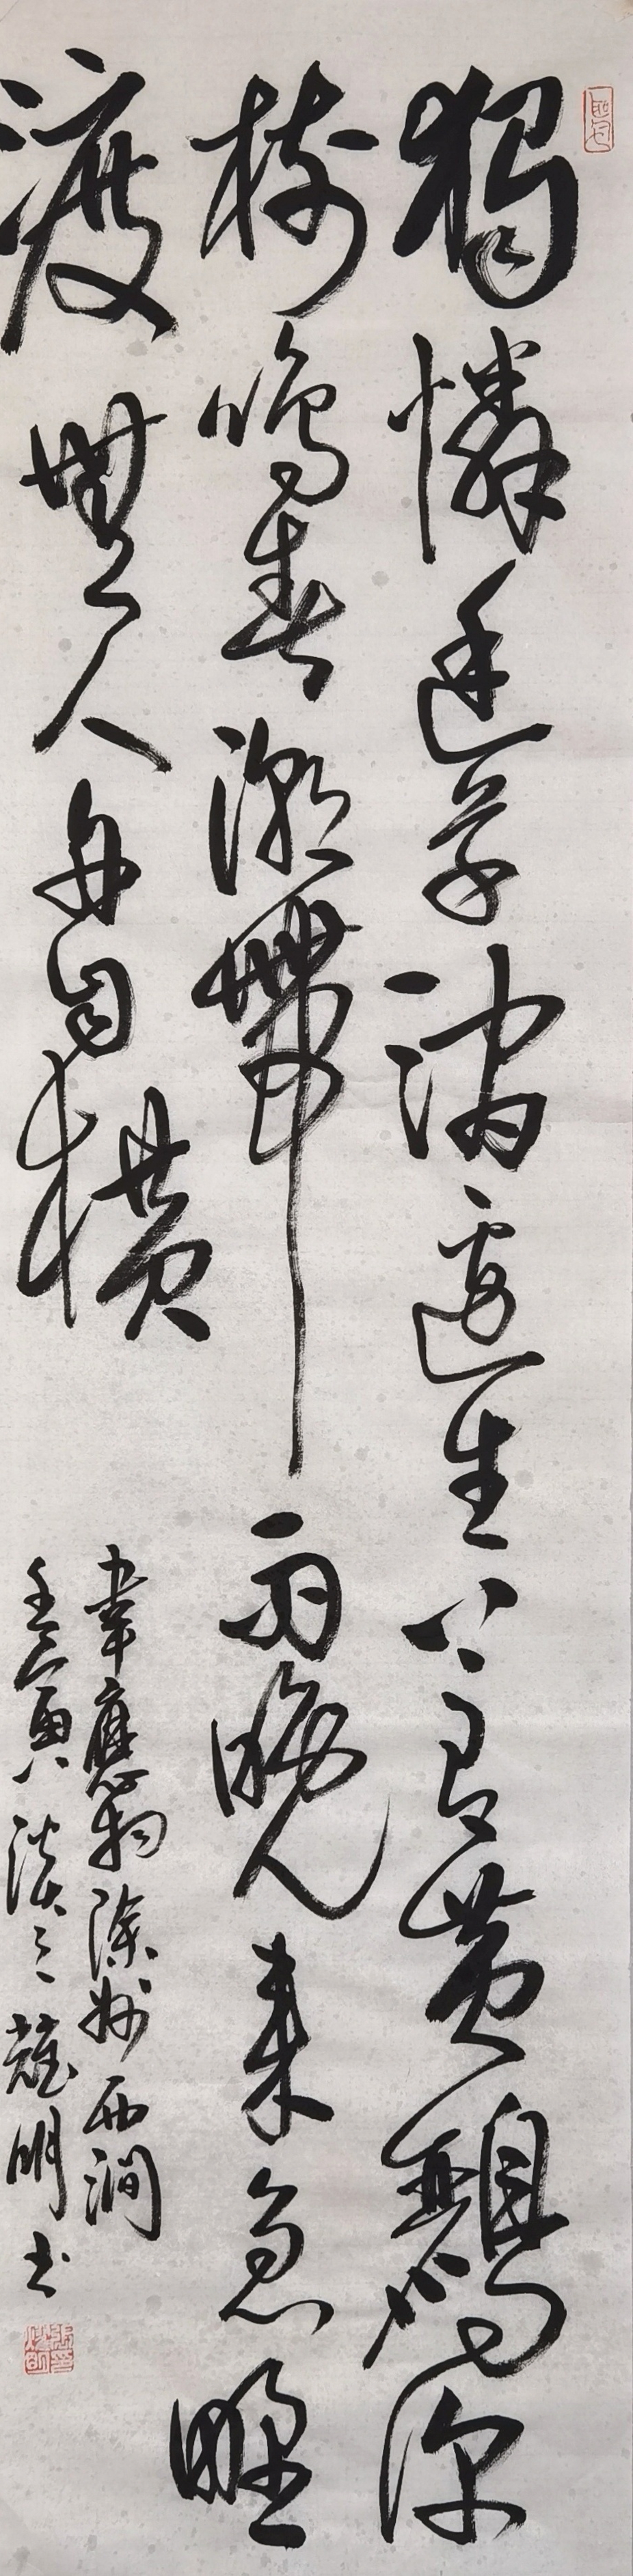 獨憐幽草澗邊生上有黃鸝深
樹鳴春潮帶雨晚來急野
渡無人舟自橫
韋應物滁州西澗
壬寅耀明書